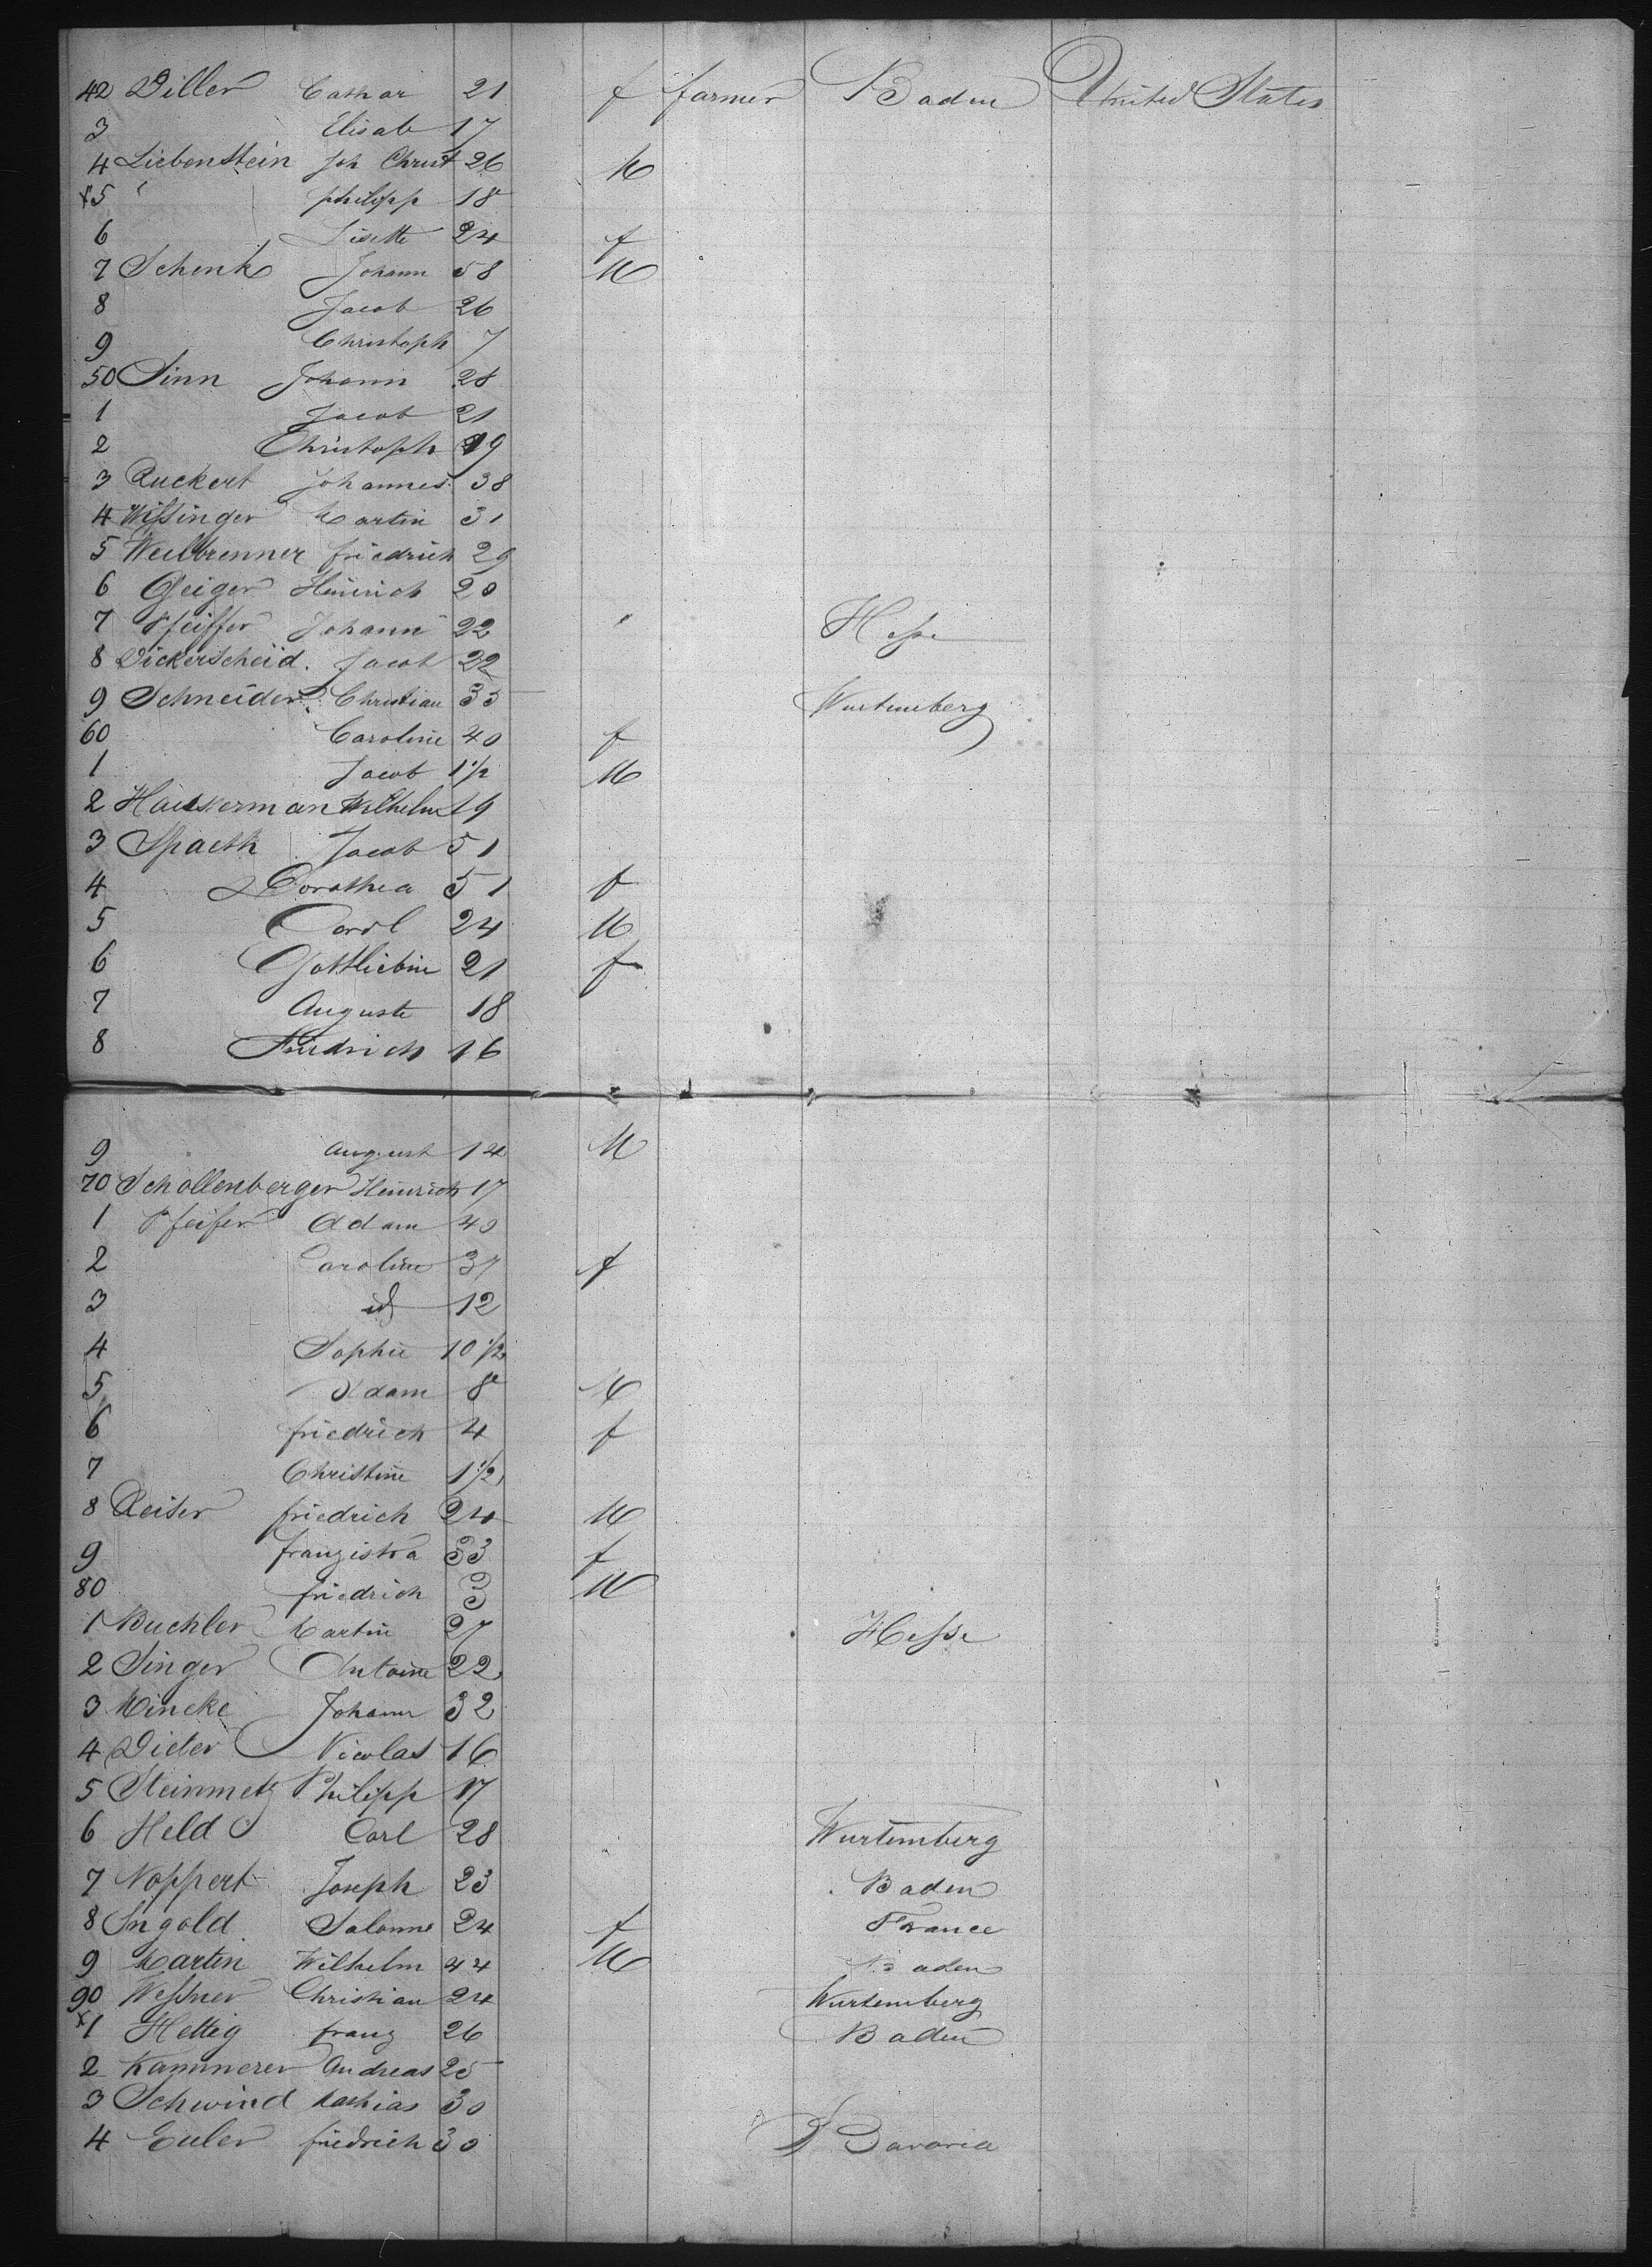 42 Diller Cathar 21 f farmer Baden United States
3 Elisab 17
4 Liebenstein Joh Christ 26 M
x5 philipp 18
6 Lisette 24 f
7 Schenk Johann 58 M
8 Jacob 26
9 Christoph 7
50 Sinn Johann 28
1 Jacob 21
2 Christoph 19
3 Ruckert Johannes 38
4 Wissinger Martin 31
5 Weilbrenner friedrich 29
6 Geiger Heinrich 20
7 Pfeiffer Johann 22 Hesse
8 Dickerscheid Jacob 22
9 Schneider Christian 35 Wurtemberg
60 Caroline 40 f
1 Jacob 1 1/2 M
2 Hauserman Wilhelm 19
3 Spaeth Jacob 51
4 Dorothea 51 f
5 Carl 24 M
6 Gottliebin 21 f
7 Auguste 18
8 Friedrich 16
9 August 14 M
70 Schollenberger Heinrich 17
1 Pfeifer Adam 40
2 Caroline 37 f
3 id 12
4 Sophie 10 1/2
5 Adam 8 M
6 friedrich 4 f
7 Christine 1 1/2
8 Reiser friedrich 24 M
9 franziska 33 f
80 friedrich 3 M
1 Buchler Martin 27 Hesse
2 Singer Antoine 22
3 Mincke Johann 32
4 Dieter Nicolas 16
5 Steinmetz Philipp 17
6 Held Carl 28 Wurtemberg
7 Noppert Joseph 23 Baden
8 Ingold Salome 24 f France
9 Martin Wilhelm 44 M Baden
90 Wessner Christian 24 Wurtemberg
x1 Hettig franz 26 Baden
2 Kammerer Andreas 25
3 Schwind Mathias 30
4 Euler friedrich 30 Bavaria